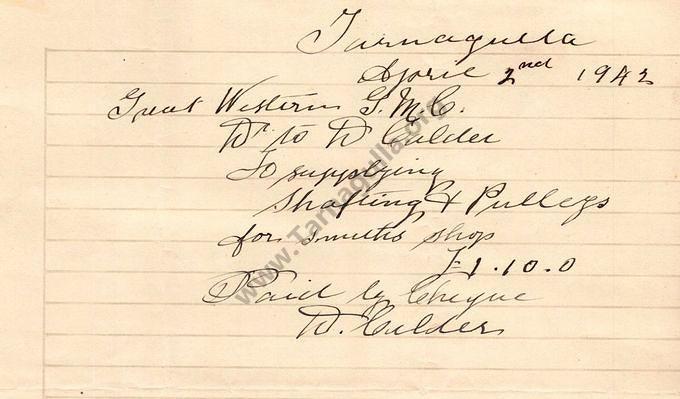 Tarnagulla
April 2nd 1942
Great Western G.M.C.
Dr to D Calder
To supplying
Shafting & Pulleys
for smiths shop
£1.10.0
Paid by Cheque
D. Calder
www.Tarnagulla.org